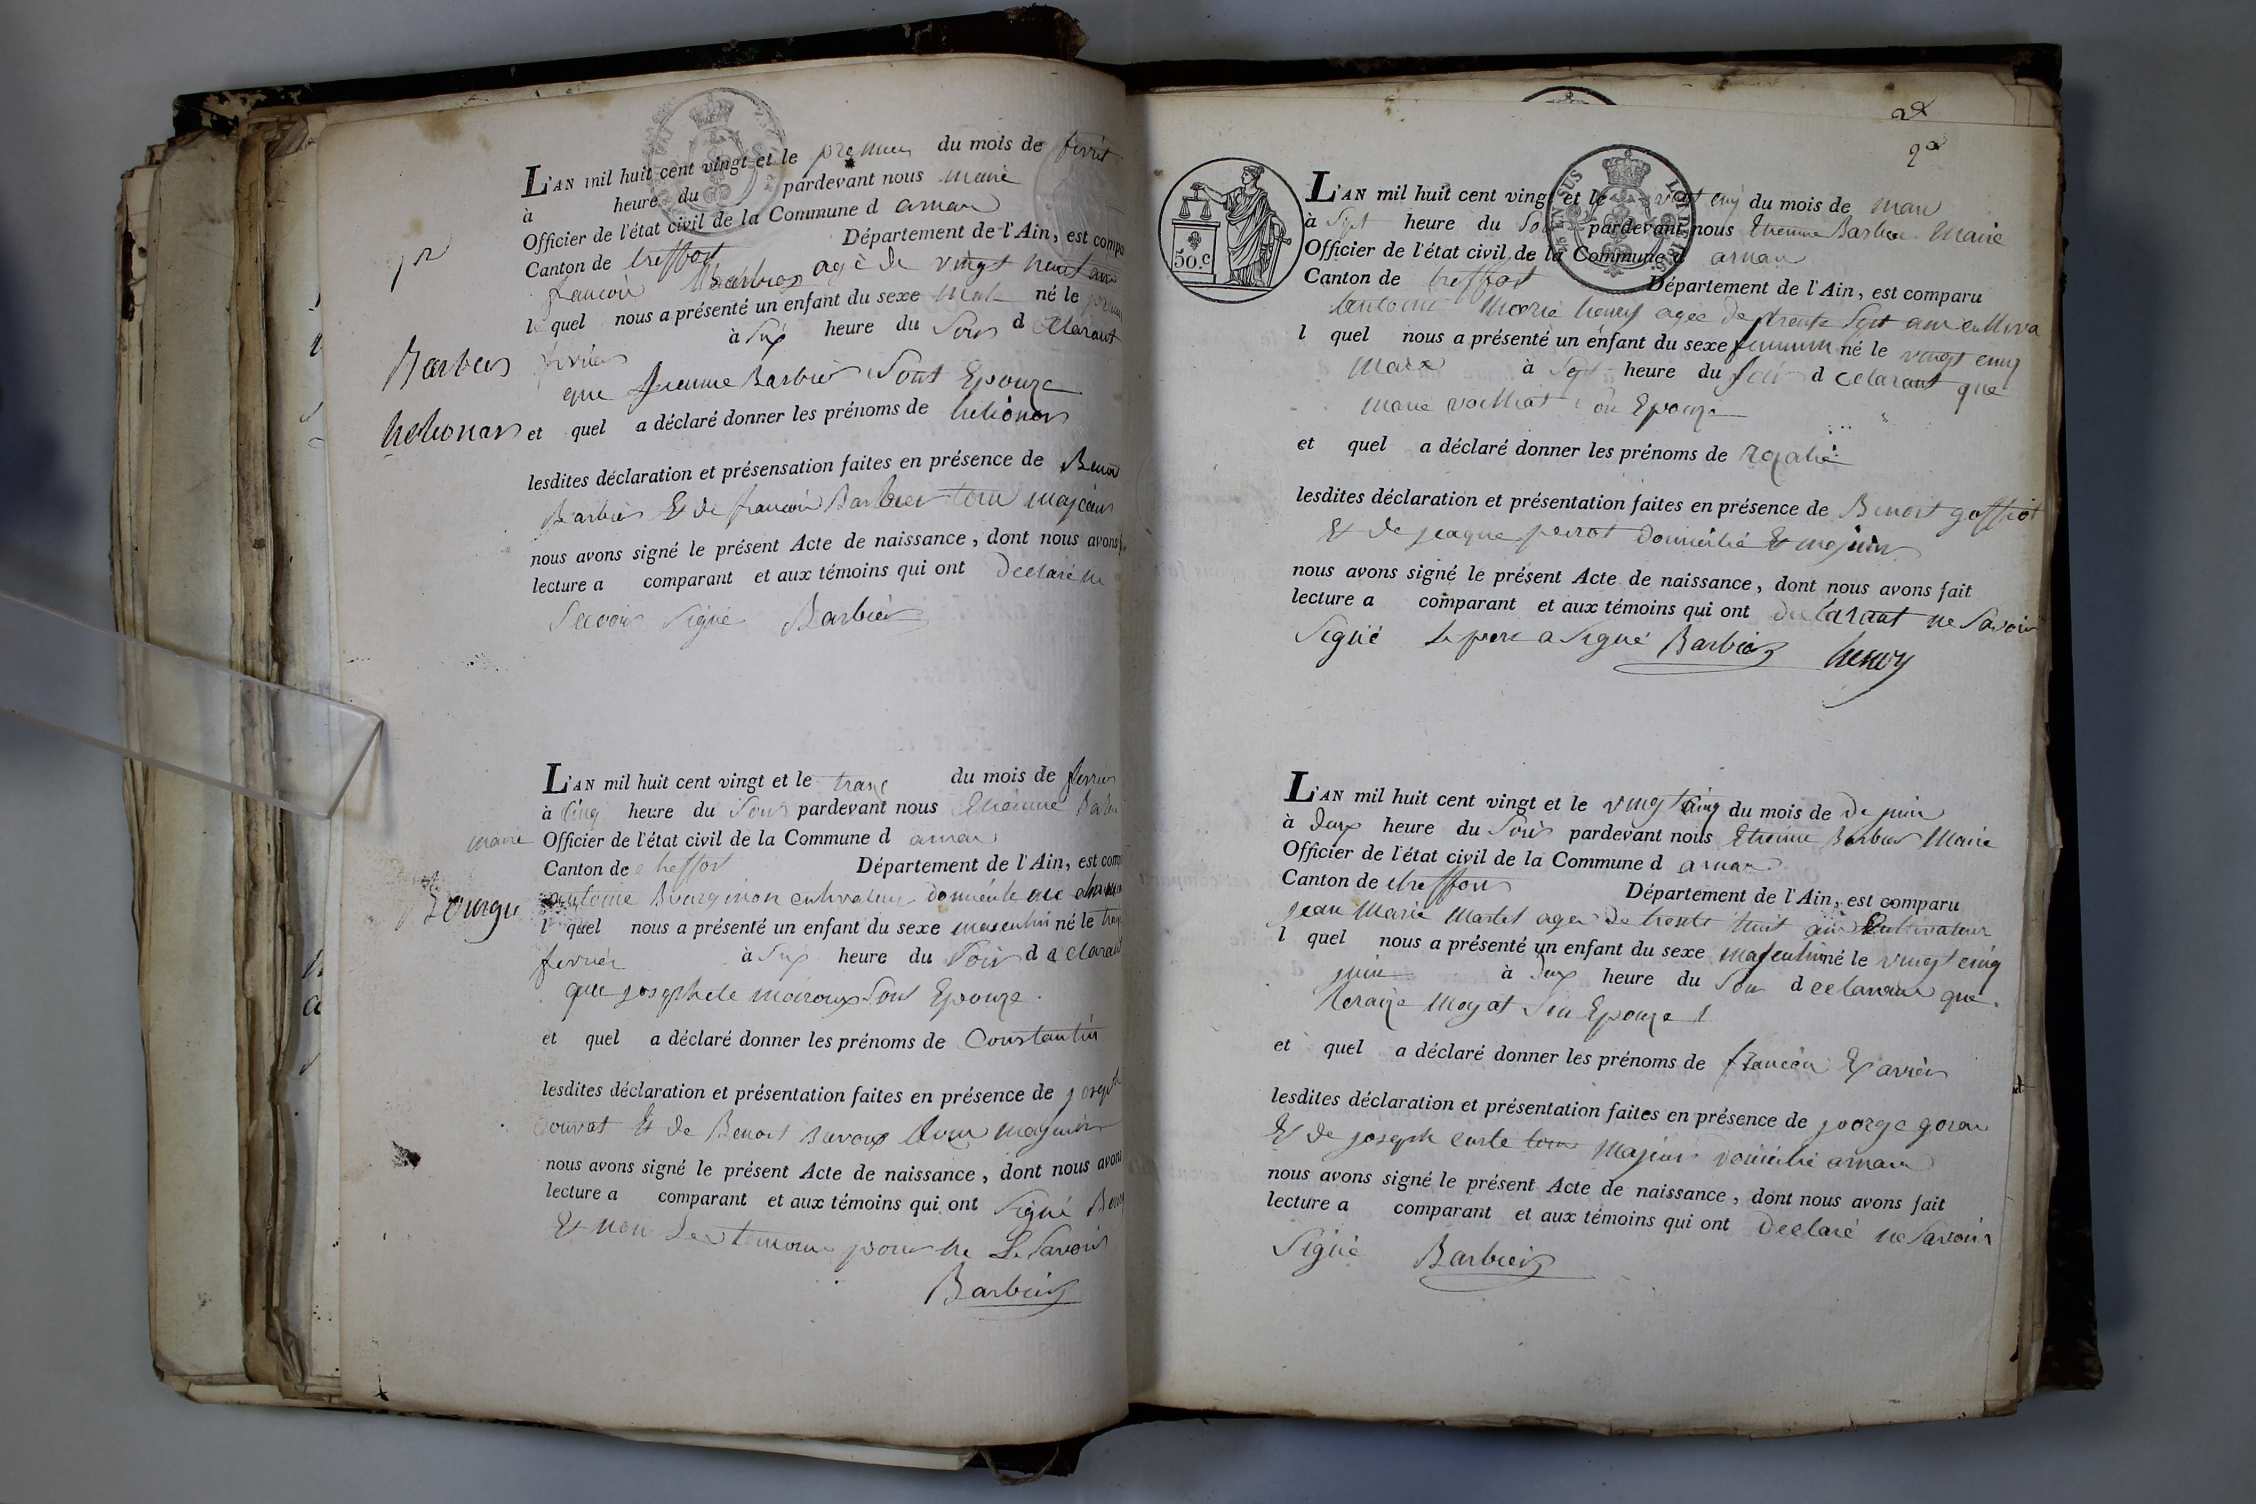 1er
L'AN mil huit cent vingt et le premier du mois de fevri
à heure du pardevant nous Maire
Officier de l'état civil de la Commune d arnan
Canton de treffort Département de l'Ain, est compa
francois Barbier agè de vingt neuf ans
le quel nous a présenté un enfant du sexe Male né le premier
fevrier à Six heure du Soir d eClarant
que Barbier Sont Epouze
Barbier
et quel a déclaré donner les prénoms de
lesdites déclaration et présensation faites en présence de Benoit
Barbier Et de francois Barbier majeur
nous avons signé le présent Acte de naissance, dont nous avons
lecture a comparant et aux témoins qui ont declaré ne
Savoir Signé Barbier
L'AN mil huit cent vingt et le traize du mois de fevrier
à Cinq heure du Soir pardevant nous Etienne Barbi
maire Officier de l'état civil de la Commune d arnan
Canton de treffort Département de l'Ain, est comp
Bourg
antoine Bourginon cultivateur domicile
l quel nous a présenté un enfant du sexe masculin né le traiz
fevrier à Six heure du Soir d eclarant
que josephete Sont Epouze
et quel a déclaré donner les prénoms de Constantin
lesdites déclaration et présentation faites en présence de joseph
Et de Benoit majeur
nous avons signé le présent Acte de naissance, dont nous avons
lecture a comparant et aux témoins qui ont Signé
Et non Les temoins pour ne Le Savoir
Barbier
2e
2e
50.c
LOI DE 1816
EN SUS
L'AN mil huit cent vingt et le vint cinq du mois de mars
à Sept heure du Soir pardevant nous Etienne Barbier Maire
Officier de l'état civil de la Commune d arnan
Canton de treffort Département de l'Ain, est comparu
antoine Marie henry agée de trente Sept ans cultiva
l quel nous a présenté un énfant du sexe feminin né le vingt cinq
Mars à Sept heure du Soir d eclarant que
marie Son Epouze
et quel a déclaré donner les prénoms de rozalie
lesdites déclaration et présentation faites en présence de Benoit goffiot
Et de jeaque perrot Domicilié Et majeur
nous avons signé le présent Acte de naissance, dont nous avons fait
lecture a comparant et aux témoins qui ont declarant ne Savoir
Signé Le pere a Signé Barbier henry
L'AN mil huit cent vingt et le vingt cinq du mois de De juin
à Deux heure du Soir pardevant nous Etienne Barbier Maire
Officier de l'état civil de la Commune d arnan
Canton de treffort Département de l'Ain, est comparu
jean Marie Martel agée De trente huit ans Cultivateur
l quel nous a présenté un enfant du sexe masculin né le vingt cinq
juin à Deux heure du Soir d eclarant que
Moyat Son Epouze
et quel a déclaré donner les prénoms de francois Exavier
lesdites déclaration et présentation faites en présence de
Et de joseph majeur Domicilié arnan
nous avons signé le présent Acte de naissance, dont nous avons fait
lecture a comparant et aux témoins qui ont Declaré ne Savoir
Signé Barbier